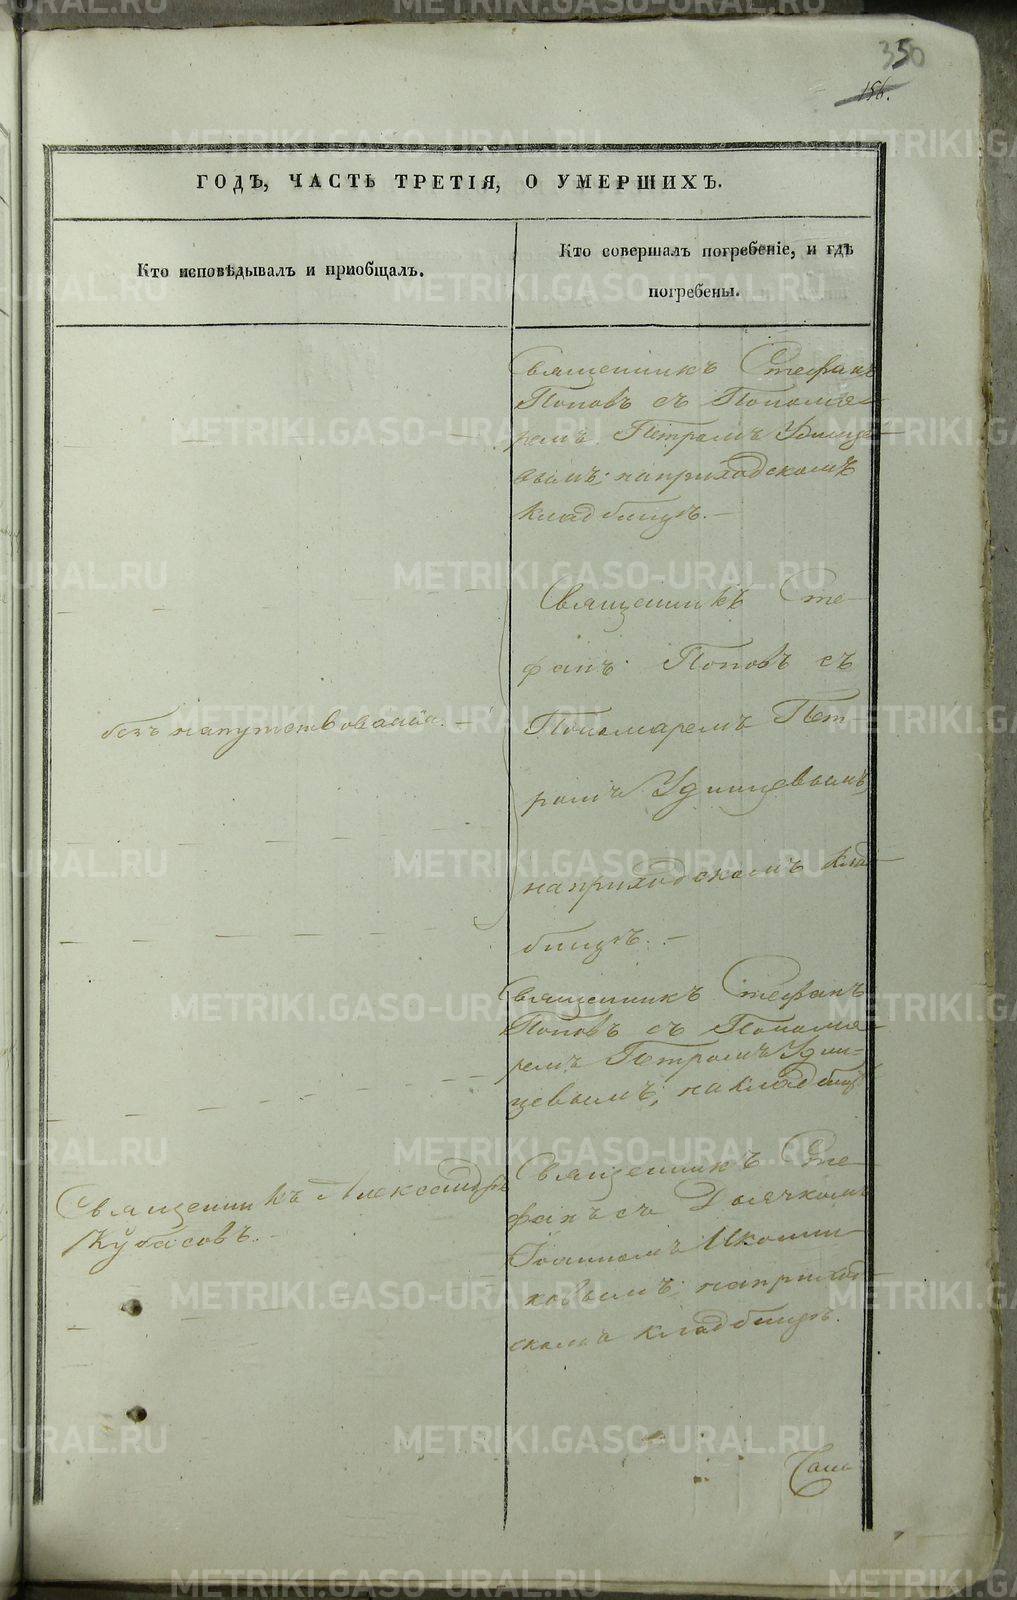 350
156.
ГОДЪ, ЧАСТЬ ТРЕТІЯ, О УМЕРШИХЪ.
Кто исповѣдывалъ и пріобщалъ.
Кто совершалъ погребеніе, и гдѣ
погребены.
Священникъ Стефанъ
Поповъ съ Понома-
ремъ Петромъ Удинце-
вымъ; на приходскомъ
кладбищѣ.-
Священникъ Сте-
фанъ Поповъ съ
Пономаремъ Пет-
ромъ Удинцевымъ,
на приходскомъ клад-
бищѣ.-
безъ напутствованія.-
Священникъ Стефанъ
Поповъ съ Понома-
ремъ Петромъ Удин-
цевымъ; на кладбищѣ
Священникъ Александръ
Кубасовъ.-
Священникъ Сте-
фанъ съ Дьячкомъ
Іоанномъ Иконни-
ковымъ; на приход-
скомъ кладбищѣ.
METRIKI.GASO-URAL.RU